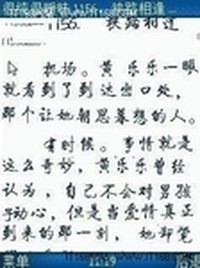 1156. 狭路相逢
机场。黄乐乐一眼
就看到了到达出口处，
那个让她朝思暮想的人。
有时候。事情就是
这么奇妙，黄乐乐曾经
认为，自己不会对男孩
子动心，但是当爱情真正
到来的那一刻，她却
菜单
11:19